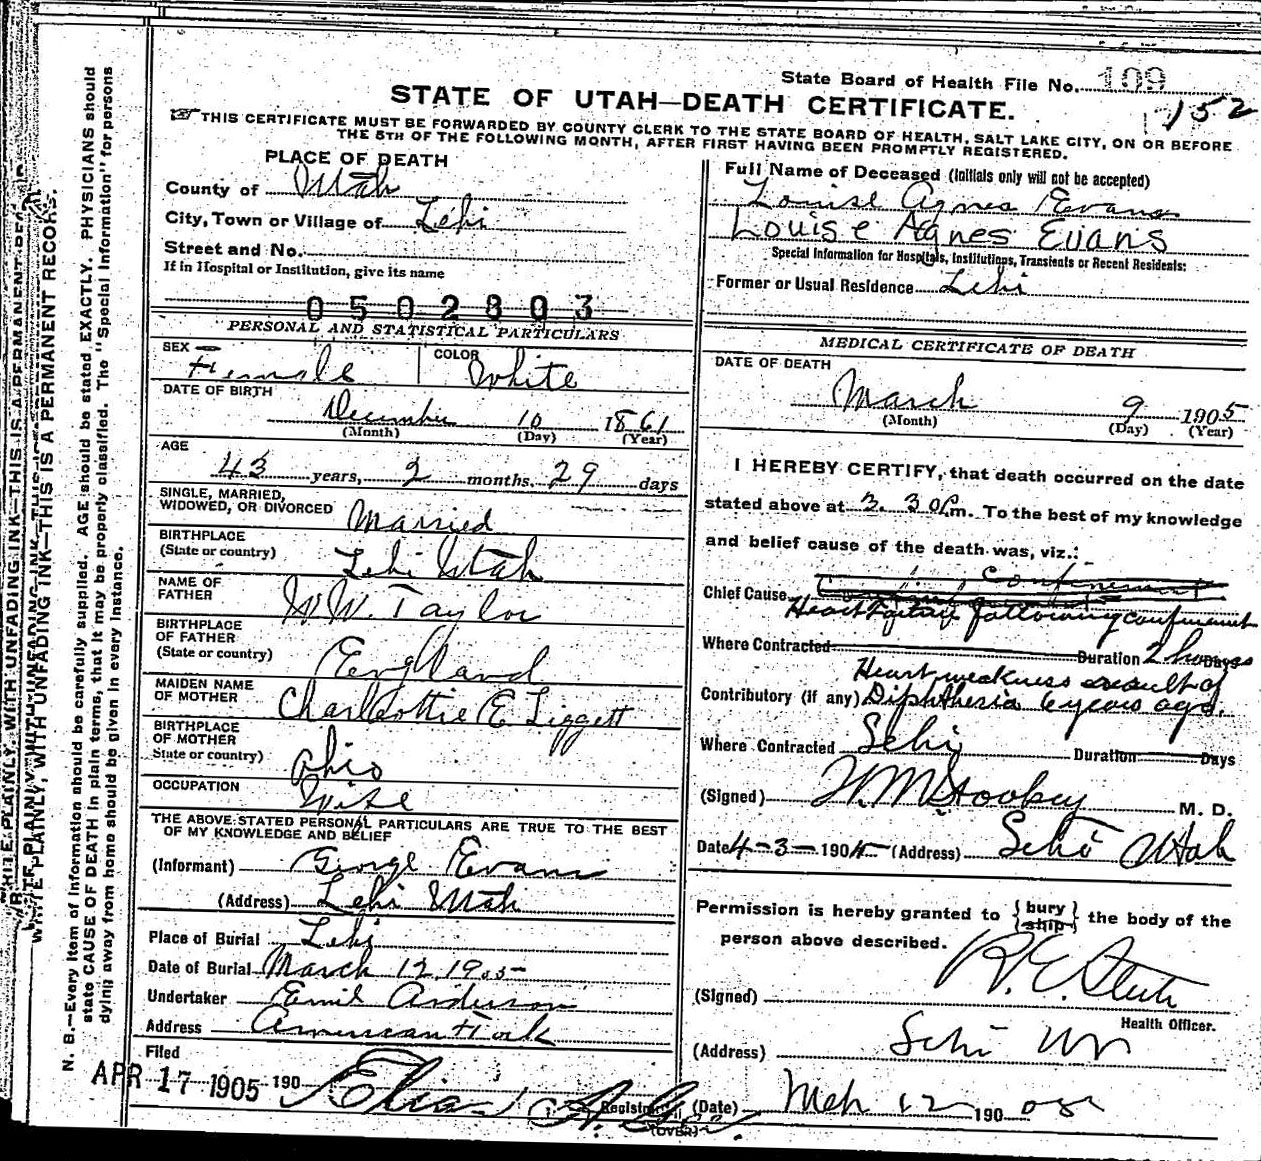 State Board of Health File No. 109
152
STATE OF UTAH—DEATH CERTIFICATE.
☞THIS CERTIFICATE MUST BE FORWARDED BY COUNTY CLERK TO THE STATE BOARD OF HEALTH, SALT LAKE CITY, ON OR BEFORE
THE 5TH OF THE FOLLOWING MONTH, AFTER FIRST HAVING BEEN PROMPTLY REGISTERED.
PLACE OF DEATH
County of Utah
City, Town or Village of Lehi
Street and No.
If in Hospital or Institution, give its name
0502803
Full Name of Deceased (Initials only will not be accepted)
Louise Agnes Evans
Louise Agnes Evans
Special Information for Hospitals, Institutions, Transients or Recent Residents:
Former or Usual Residence Lehi
PERSONAL AND STATISTICAL PARTICULARS
SEX Female COLOR White
DATE OF BIRTH
December 10 1861
(Month) (Day) (Year)
AGE
43 years, 2 months, 29 days
SINGLE, MARRIED,
WIDOWED, OR DIVORCED Married
BIRTHPLACE
(State or country) Lehi Utah
NAME OF
FATHER W.W. Taylor
BIRTHPLACE
OF FATHER
(State or country) England
MAIDEN NAME
OF MOTHER Charlottie E Liggett
BIRTHPLACE
OF MOTHER
State or country) Ohio
OCCUPATION Wife
THE ABOVE STATED PERSONAL PARTICULARS ARE TRUE TO THE BEST
OF MY KNOWLEDGE AND BELIEF
(Informant) George Evans
(Address) Lehi Utah
Place of Burial Lehi
Date of Burial March 12 1905
Undertaker Emil Anderson
Address American Fork
Filed
APR 17 1905 190
Registrar
(OVER)
MEDICAL CERTIFICATE OF DEATH
DATE OF DEATH
March 9 1905
(Month) (Day) (Year)
I HEREBY CERTIFY, that death occurred on the date
stated above at 3.30 P.m. To the best of my knowledge
and belief cause of the death was, viz.:
Chief Cause Confinement
following confinement
Where Contracted Duration 2 hours Days
Heart weakness result of
Contributory (if any) Diphtheria 6 years ago.
Where Contracted Lehi Duration Days
(Signed) M. D.
Date 4-3-190 (Address) Lehi Utah
Permission is hereby granted to {bury ship} the body of the
person above described.
(Signed) R. E.
Health Officer.
(Address) Lehi
(Date) Mch 12 190 05
N. B.—Every item of information should be carefully supplied. AGE should be stated EXACTLY. PHYSICIANS should
state CAUSE OF DEATH in plain terms, that it may be properly classified. The "Special Information" for persons
dying away from home should be given in every instance.
WRITE PLAINLY, WITH UNFADING INK—THIS IS A PERMANENT RECORD.